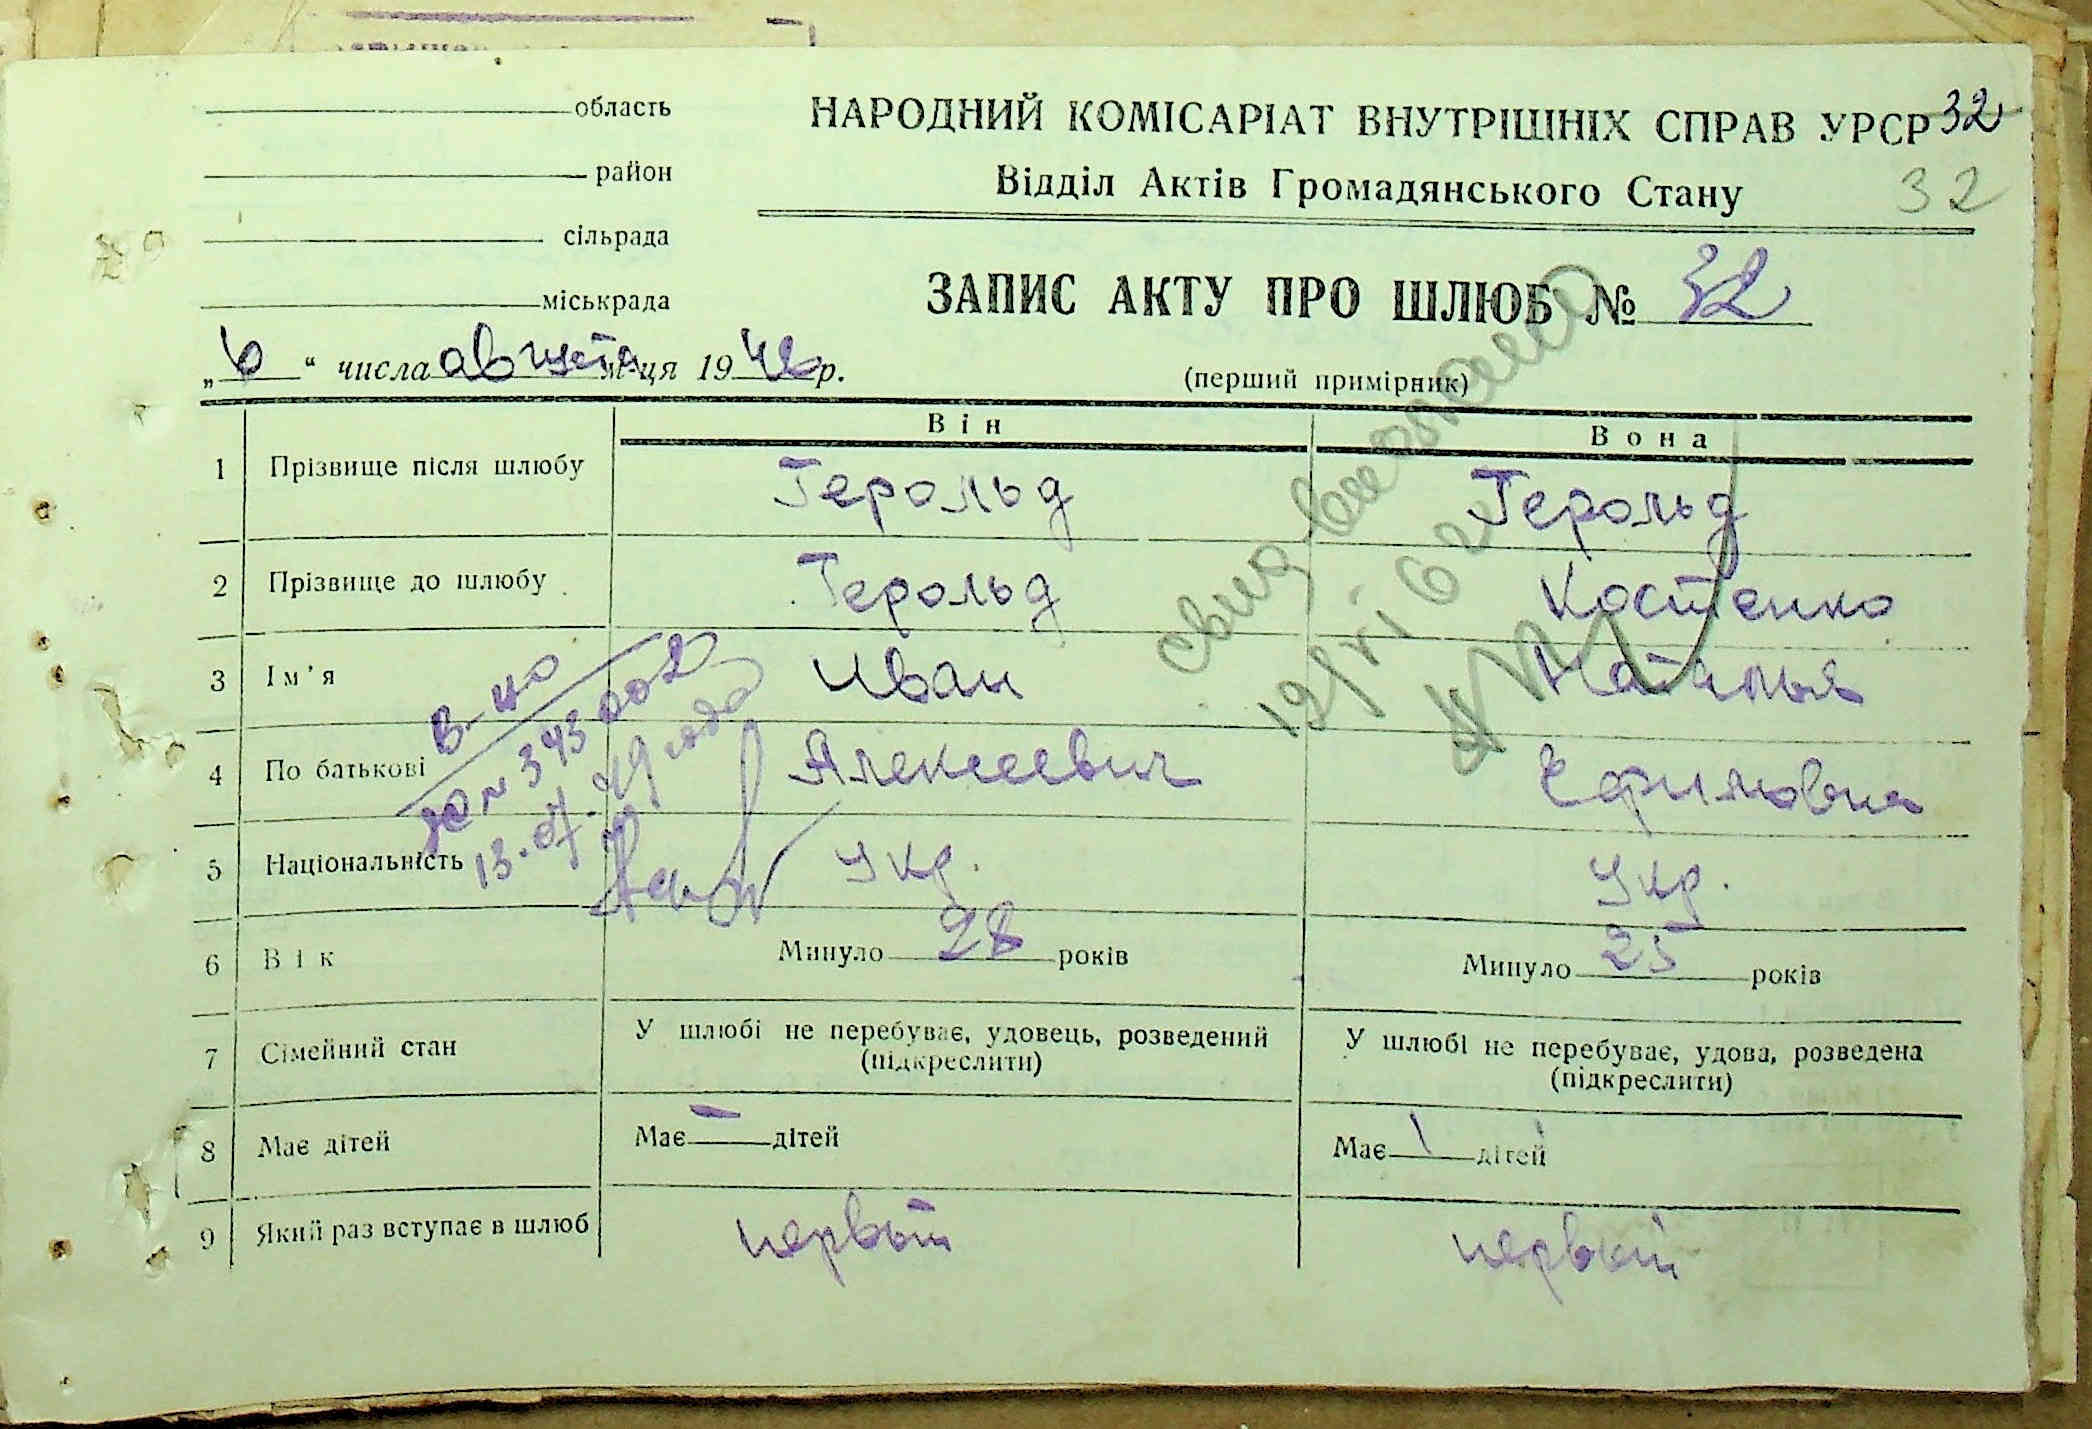 область
район
сільрада
міськрада
НАРОДНИЙ КОМІСАРІАТ ВНУТРІШНІХ СПРАВ УРСР 32
Відділ Актів Громадянського Стану 32
ЗАПИС АКТУ ПРО ШЛЮБ № 32
„6“ числа августа м-ця 19 р.
(перший примірник)
Він Вона
1 Прізвище після шлюбу Герольд Герольд
2 Прізвище до шлюбу Герольд Костенко
3 Ім'я Иван Наталья
4 По батькові Алексеевич Ефимовна
5 Національність Укр. Укр.
6 Вік Минуло 28 років Минуло 25 років
7 Сімейний стан У шлюбі не перебуває, удовець, розведений (підкреслити) У шлюбі не перебуває, удова, розведена (підкреслити)
8 Має дітей Має — дітей Має 1 дітей
9 Який раз вступає в шлюб первый первый
№ 343002
13.07.79 года